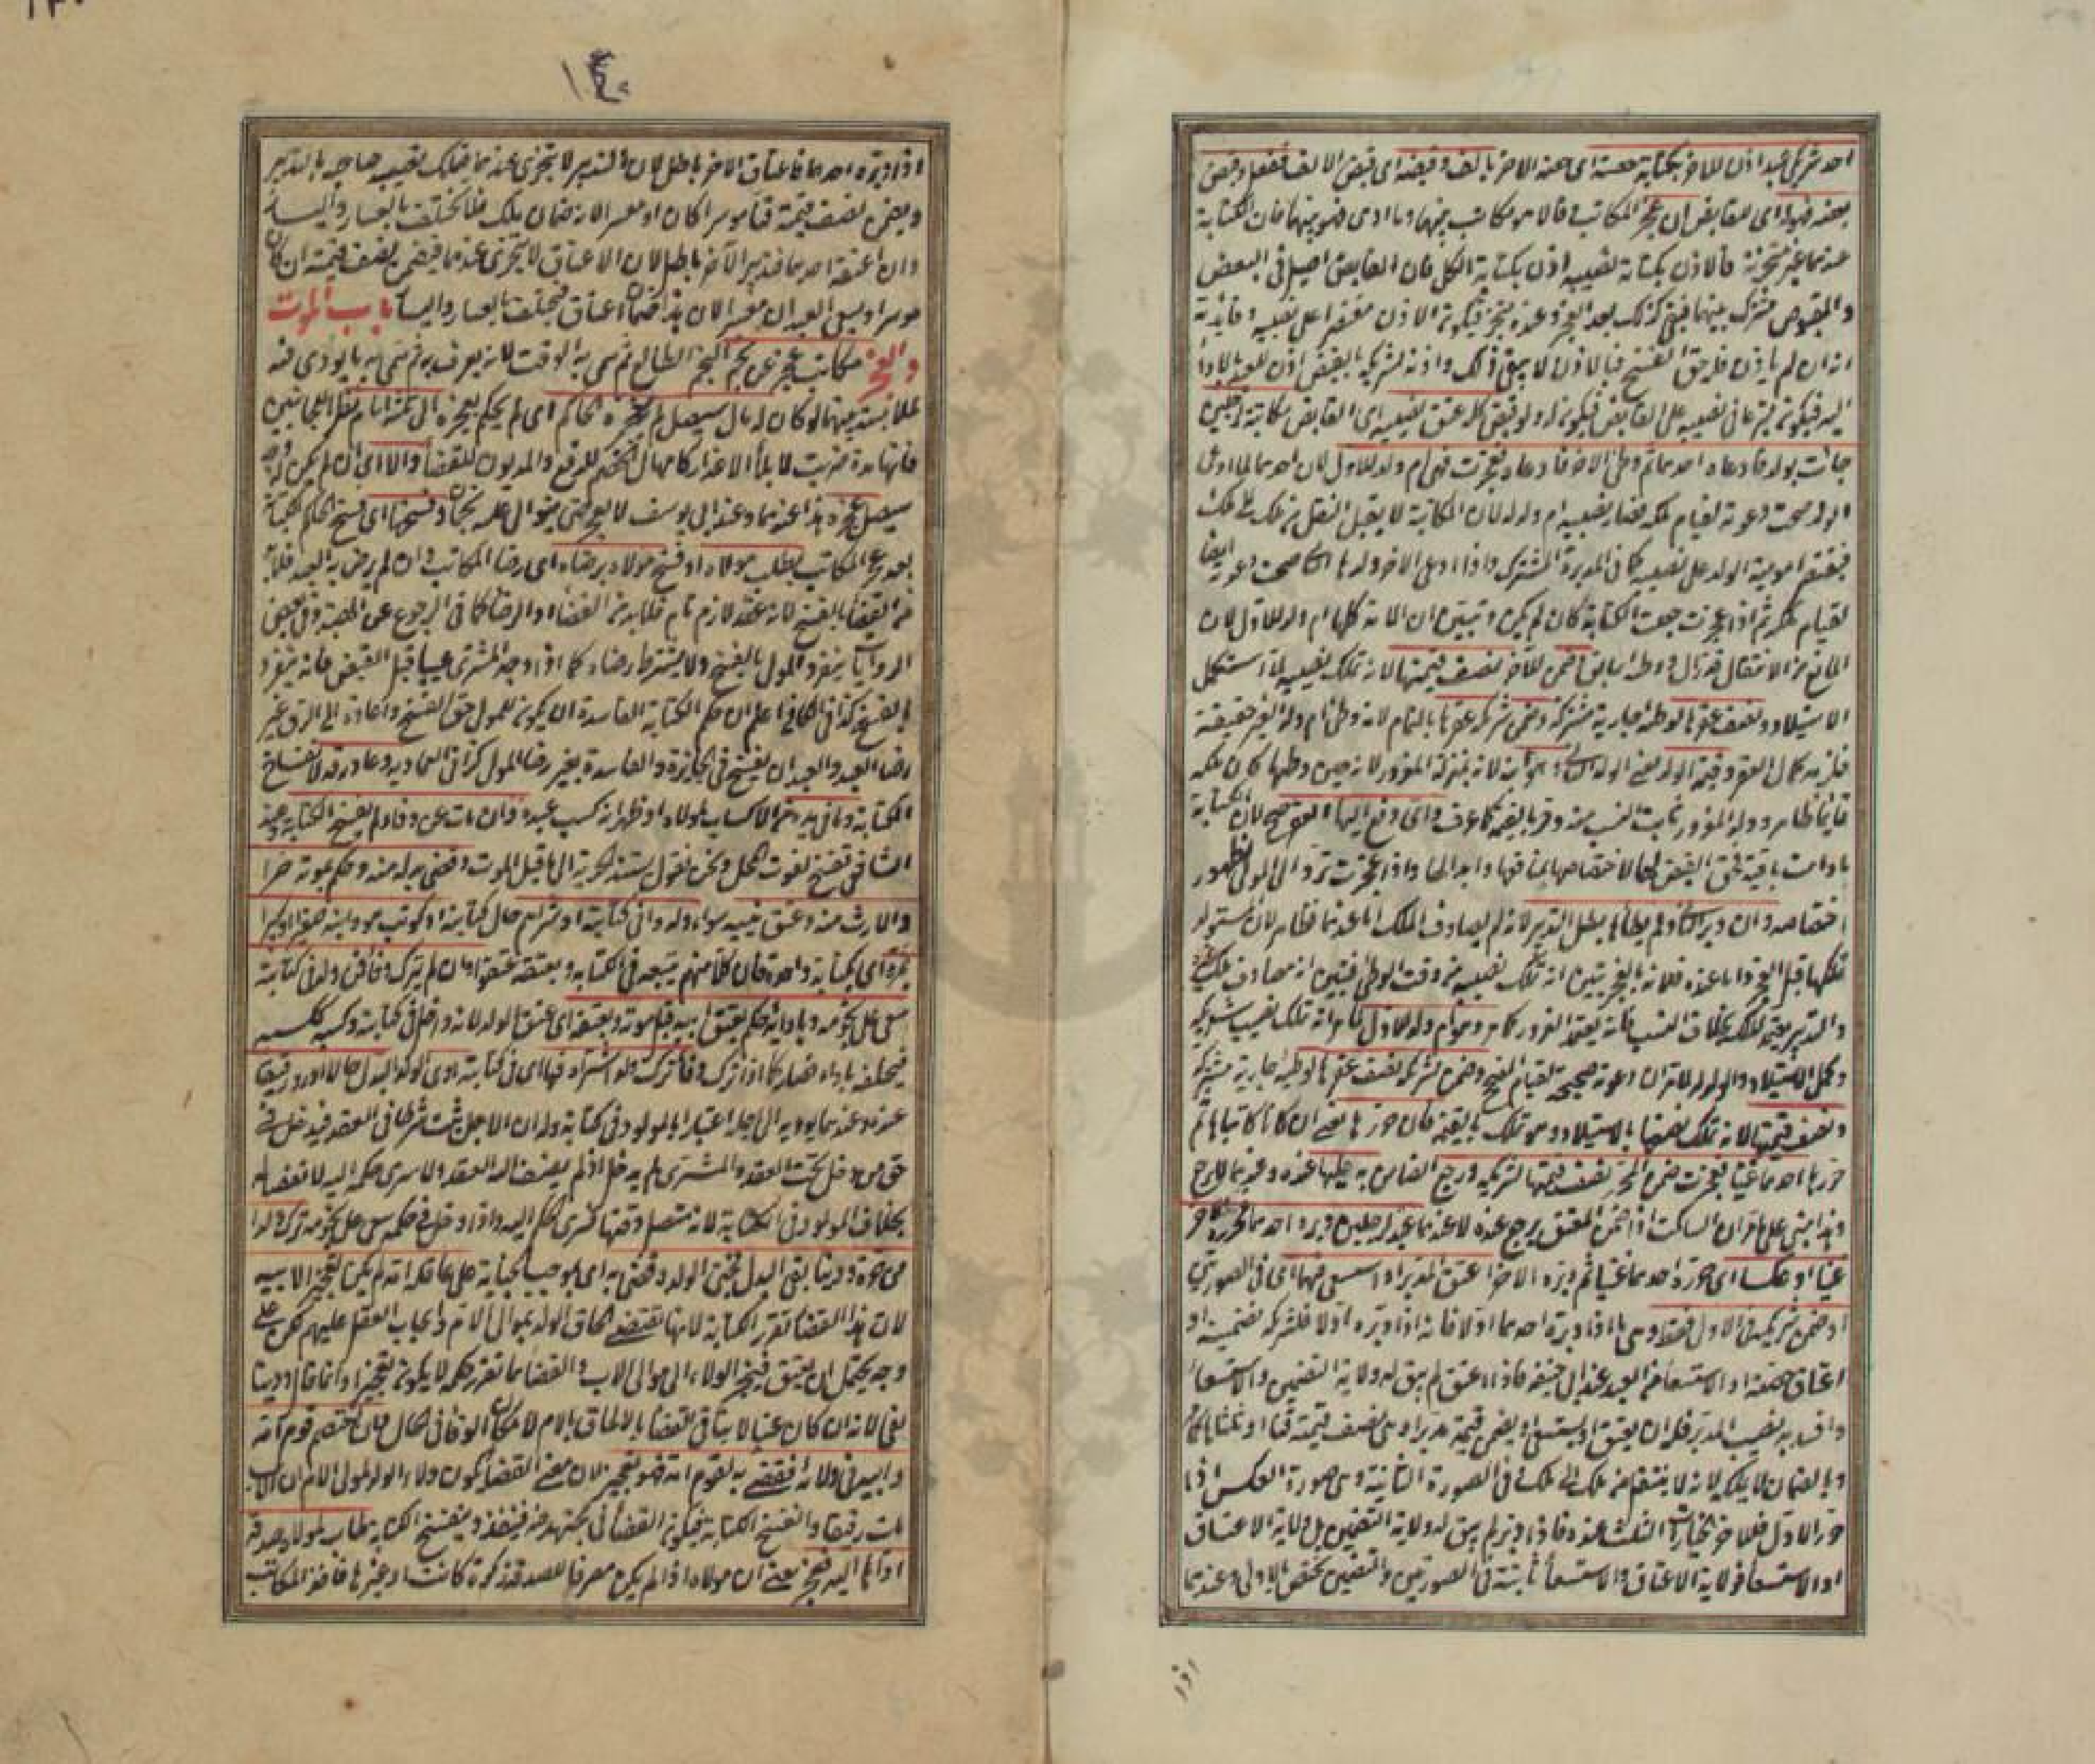 احد شريكي عبد اذن للآخر بكتابة حصته اى حصة الآخر بالف وقبضه اى قبض الالف ففعل وقبض
بعضه فهو اى للقابض ان عجز المكاتب وقالا هو مكاتب بينهما وما ادى فهو بينهما فان الكتابة
عندهما غير متجزئة فالاذن بكتابة نصيبه اذن بكتابة الكل فان القابض اصيل فى البعض
والمقبوض مشترك بينهما فيبقى كذلك بعد العجز وعنده متجزئ فيكون الاذن مقتصرا على نصيبه وفائدته
انه ان لم ياذن فله حق الفسخ فبالاذن لا يبقى ذلك واذنه لشريكه بالقبض اذن للعبد بالاداء
اليه فيكون متبرعا فى نصيبه على القابض فيكون له ولو قبض كل عتق نصيبه اى القابض مكاتبة لرجلين
جائت بولد فادعاه احدهما ثم وطئ الآخر فادعاه فعجزت فهى ام ولد للاول لان احدهما لما ادعى
الولد صحت دعوته لقيام ملكه فصار نصيبه ام ولد له لان المكاتبة لا يقبل النقل من ملك الى ملك
فيقتصر امومية الولد على نصيبه كما فى المدبرة المشتركة واذا ادعى الآخر ولدها الثانى صحت دعوته ايضا
لقيام ملكه ثم اذا عجزت جعلت الكتابة كان لم يكن وتبين ان الامة كلها ام ولد للاول لان
المانع من الانتقال قد زال ووطؤه سابق وضمن للآخر نصف قيمتها لانه تملك نصيبه لما استكمل
الاستيلاد ونصف عقرها لوطئه جارية مشتركة وضمن شريكه عقرها بالتمام لانه وطئ ام ولد الغير حقيقة
فلزمه كمال العقر وقيمة الولد يعنى الولد الثانى وهو ابنه لانه بمنزلة المغرور لانه حين وطئها كان ملكه
قائما ظاهرا وولد المغرور ثابت النسب منه وحر بالقيمة كما عرف واى دفع اليها العقر صح لان الكتابة
ما دامت باقية فحق القبض لها لاختصاصها بمنافعها وابدالها واذا عجزت ترد الى المولى لظهور
اختصاصه وان دبر الثانى ولم يطأها بطل التدبير لانه لم يصادف الملك اما عندهما فظاهر لان المستولد
تملكها قبل العجز واما عنده فلانه بالعجز تبين انه تملك نصيبه من وقت الوطئ فتبين انه مصادف ملك غيره
والتدبير يعتمد الملك بخلاف النسب فانه يعتمد الغرور كما مر وهو ام ولد للاول لما مر انه تملك نصيب شريكه
وكمل الاستيلاد والولد له لما مر ان دعوته صحيحة لقيام المصحح وضمن لشريكه نصف عقرها لوطئه جارية مشتركة
ونصف قيمتها لانه تملك نصفها بالاستيلاد وهو تملك بالقيمة فان حررها يعنى ان كانا كاتباها ثم
حررها احدهما غنيا فعجزت ضمن المحرر نصف قيمتها لشريكه ورجع الضامن به عليها عنده وعندهما لا يرجع
وهذا مبنى على ما مر ان الساكت اذا ضمن المعتق يرجع عنده لا عندهما عبد لرجلين دبره احدهما فحرره الآخر
غنيا او عكسا اى حرره احدهما غنيا ثم دبره الآخر اعتق المدبر او استسعى فيهما اى فى الصورتين
او ضمن شريكه فى الاول فقط وهى ما اذا دبره احدهما اولا فانه اذا دبره اولا فلشريكه تضمينه او
اعتاق حصته او الاستسعاء من العبد عند ابى حنيفة فاذا اعتق لم يبق له ولاية التضمين والاستسعاء
وافسد به نصيب المدبر فله ان يعتق او يستسعى او يضمن قيمة مدبرا وهى نصف قيمته قنا او ثلثاها كما مر
وبالضمان لا يملكه لانه لا ينتقل من ملك الى ملك وفى الصورة الثانية وهى صورة العكس اذا
حرر الاول فللآخر الخيارات الثلث عنده فاذا دبر لم يبق له ولاية التضمين بل ولاية الاعتاق
او الاستسعاء فولاية الاعتاق والاستسعاء ثابتة فى الصورتين والتضمين يختص بالاولى وعندهما
اذا
١٤٠
اذا دبره احدهما فاعتاق الآخر باطل لان التدبير لا يتجزى عندهما فتملك نصيبه صاحبه بالتدبير
ويضمن نصف قيمته قنا موسرا كان او معسرا لانه ضمان تملك فلا يختلف باليسار والعسار
وان اعتقه احدهما فتدبير الآخر باطل لان الاعتاق لا يتجزى عندهما فيضمن نصف قيمته ان كان
موسرا ويسعى العبد ان معسرا لان هذا ضمان اعتاق فيختلف بالعسار واليسار باب الموت
والعجز مكاتب عجز عن نجم النجم الطالع ثم سمى به الوقت لانه يعرف به ثم سمى به ما يودى فيه
للملابسة بينهما لو كان له مال سيصل لم يعجزه الحاكم اى لم يحكم بعجزه الى ثلثة ايام نظرا للجانبين
فانها مدة ضربت لابلاء الاعذار كامهال الخصم للدفع والمديون للقضاء والا اى ان لم يكن له وجه
سيصل عجزه هذا عندهما وعند ابى يوسف لا يعجز حتى يتوالى عليه نجمان وفسخها اى فسخ الحاكم الكتابة
بعد عجز المكاتب بطلب مولاه او فسخ مولاه برضاه اى رضا المكاتب وان لم يرض به العبد فلا بد
من القضاء بالفسخ لانه عقد لازم تام فلا بد من القضاء او الرضا كما فى الرجوع عن الهبة وفى بعض
الروايات ينفرد المولى بالفسخ ولا يشترط رضاه كما اذا وجد المشترى عيبا قبل القبض فانه ينفرد
بالفسخ كذا فى الكافى اعلم ان حكم الكتابة الفاسدة ان يكون للمولى حق الفسخ واعادته الى الرق بغير
رضاء العبد والعبد ان يفسخ فى الجائزة والفاسدة بغير رضا المولى كذا فى العمادية وعاد رقه لانفساخ
الكتابة وما فى يده من الاكساب لمولاه اذ ظهر انه كسب عبده وان مات عن وفاء لم يفسخ الكتابة وعند
الشافعى تفسخ لفوت المحل ونحن نقول يستند الحرية الى ما قبل الموت وقضى بدله منه وحكم بموته حرا
والارث منه وعتق بنيه سواء ولدوا فى كتابته او شراهم حال كتابته او كوتب هو وابنه صغيرا او كبيرا
بمرة اى بكتابة واحدة فان كلا منهم يتبعه فى الكتابة وبعتقه عتقوا وان لم يترك وفاء فمن ولد فى كتابته
سعى على نجومه وبادائه حكم بعتق ابيه قبل موته وبعتقه اى عتق الولد لانه داخل فى كتابته وكسبه ككسبه
فيخلفه باداء فصار كما اذا ترك وفاء ترك ولدا شراه فيها اى فى كتابته ادى الولد البدل حالا او رد رقيقا
عنده وعندهما يوديه الى اجله اعتبارا بالمولود فى كتابته وله ان الاجل يثبت شرطا فى العقد فيدخل فى
حق من دخل تحت العقد والمشترى لم يدخل اذ لم يضف اليه العقد ولا سرى حكمه اليه لانفصاله
بخلاف المولود فى الكتابة لانه متصل وقتها فسرى الحكم اليه واذا دخل فى حكمه سعى على نجومه ترك ولدا
من حرة ودينا بفى البدل فجنى الولد وقضى به اى بموجب الجناية على عاقلة امه لم يكن تعجيزا لابيه
لان هذا القضاء تقرر الكتابة لانها تقتضى الحاق الولد بموالى الام وايجاب العقل عليهم لكن على
وجه يحتمل ان يعتق فينجر الولاء الى موالى الاب والقضاء بما تقرر حكمه لا يكون تعجيزا وانما قال ودينا
يفى لانه ان كان عينا لا يتاتى القضاء بالالحاق بالام لامكان الوفاء فى الحال وان اختصم قوم امه
وابيه فى ولائه فقضى به لقوم امه فهو تعجيز لان معنى القضاء كون ولاء الولد لمولى الام ان الاب
مات رقيقا وانفسخ الكتابة فيكون القضاء فى مجتهد فيه فينفذ وينفسخ الكتابة طاب لمولاه صدقة
اداها اليه فعجز يعنى ان مولاه اذا لم يكن مصرفا للصدقة زكوة كانت او غيرها فاخذ المكاتب